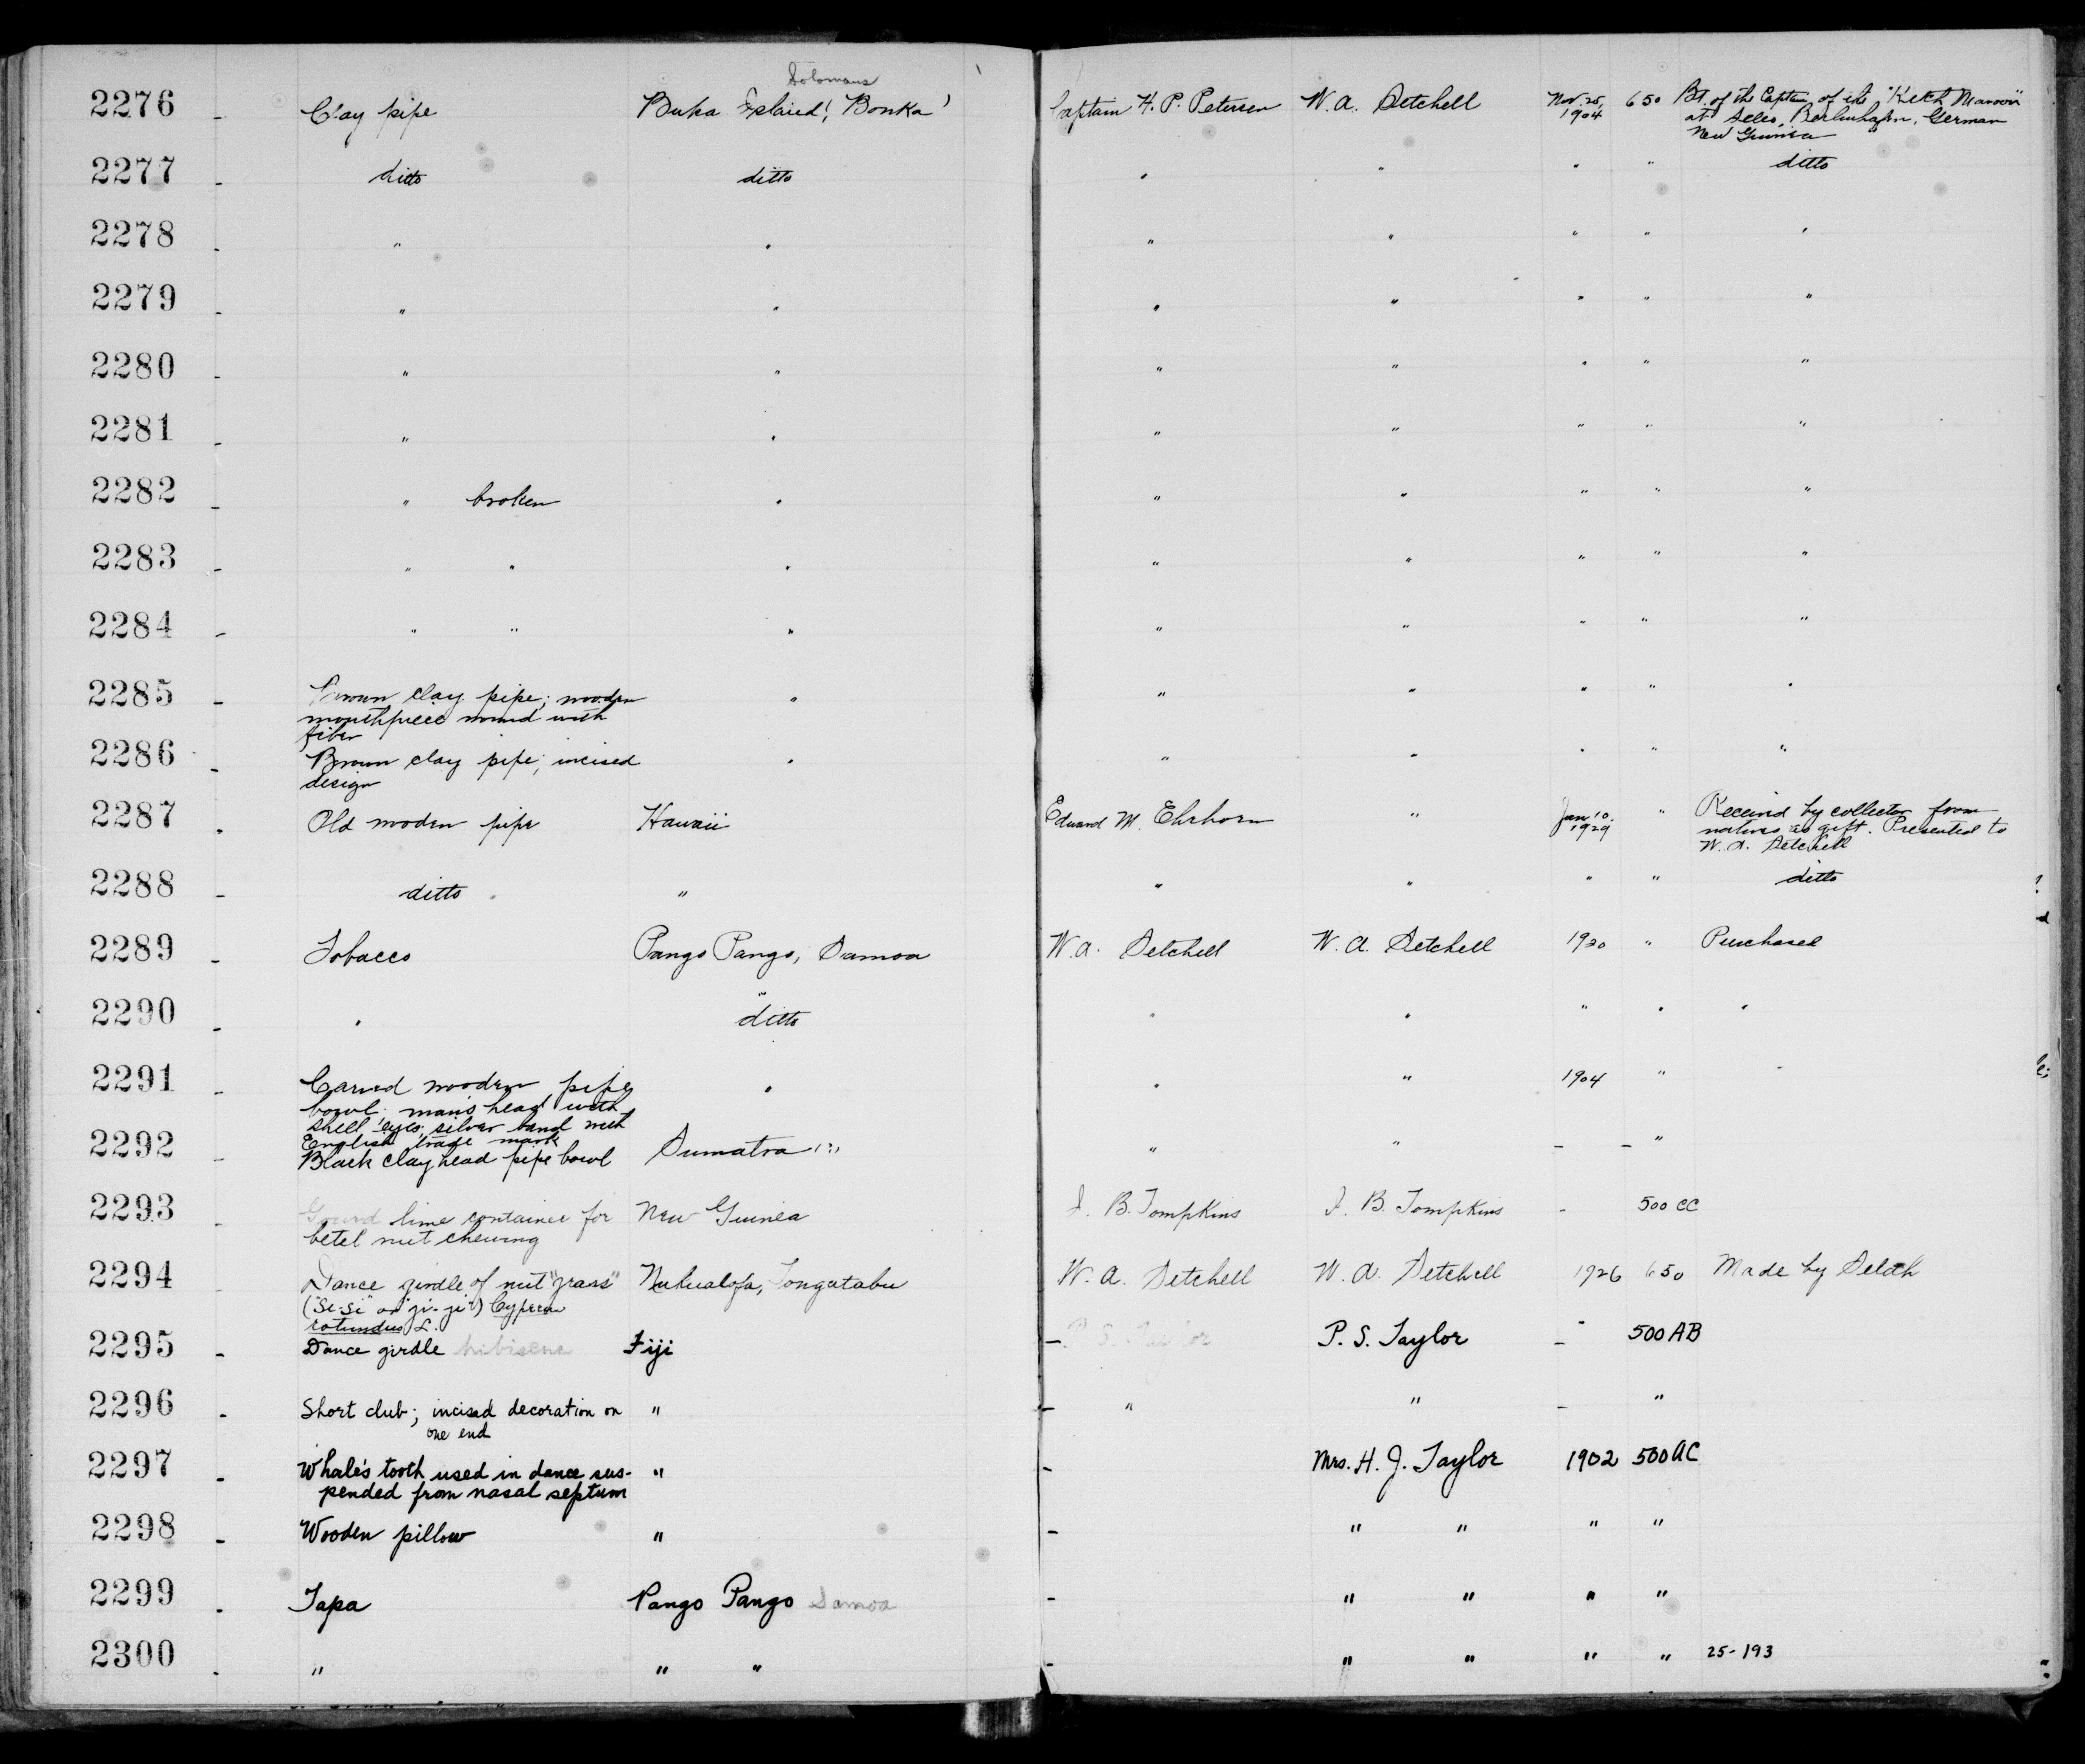 Solomons
2276 - Clay pipe Buka Island, 'Bonka' Captain H. P. Petersen W. A. Setchell Nov. 25, 1904 650 Bt. of the Captain of the "Ketch Maroon"
at Seleo, Berlinhafen, German
New Guinea
2277 - ditto ditto " " " " ditto
2278 - " " " " " " "
2279 - " " " " " " "
2280 - " " " " " " "
2281 - " " " " " " "
2282 - " broken " " " " " "
2283 - " " " " " " " "
2284 - " " " " " " " "
2285 - Brown clay pipe; wooden " " " " " "
mouthpiece wound with
fiber
2286 - Brown clay pipe; incised " " " " " "
design
2287 - Old wooden pipe Hawaii Edward M. Ehrhorn " Jan 10. 1929 " Received by collector from
natives as gift. Presented to
W. A. Setchell
2288 - ditto " " " " " ditto
2289 - Tobacco Pango Pango, Samoa W. A. Setchell W. A. Setchell 1920 " Purchased
2290 - " ditto " " " " "
2291 - Carved wooden pipe " " " 1904 " "
bowl; man's head with
shell eyes; silver band with
English trade mark
2292 - Black clay head pipe bowl Sumatra (?) " " - - "
2293 - Gourd lime container for New Guinea J. B. Tompkins J. B. Tompkins - 500 CC
betel nut chewing
2294 - Dance girdle of nut "grass" Nukualofa, Tongatabu W. A. Setchell W. A. Setchell 1926 650 Made by Selah
("Si-si" or "ji-ji") Cyperus
rotundus L.
2295 - Dance girdle hibiscus Fiji - P. S. Taylor P. S. Taylor - 500 AB
2296 - Short club; incised decoration on " - " " - "
one end
2297 - Whale's tooth used in dance sus- " - Mrs. H. J. Taylor 1902 500 AC
pended from nasal septum
2298 - Wooden pillow " - " " " "
2299 - Tapa Pango Pango Samoa - " " " "
2300 - " " " - " " " " 25-193